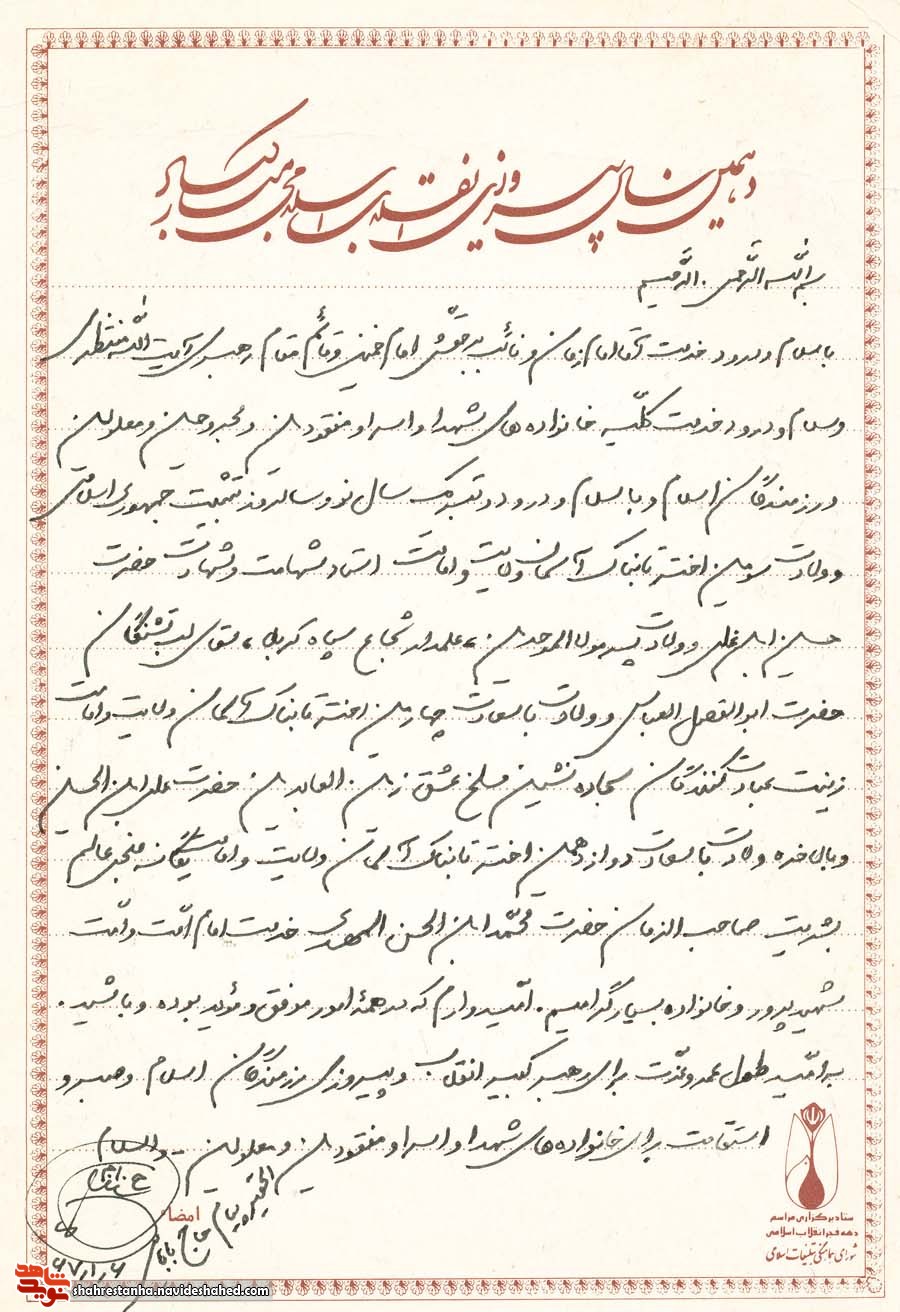 دهمین سال پیروزی انقلاب اسلامی مبارکباد
بسم الله الرحمن الرحیم
با سلام و درود خدمت آقا امام زمان و نائب برحقش امام خمینی و قائم مقام رهبری آیت الله منتظری
و سلام و درود خدمت کلّیه خانواده های شهدا و اسرا و مفقودین و مجروحین و معلولین
و رزمندگان اسلام و با سلام و درود و تبریک سال نو و سالروز تثبیت جمهوری اسلامی
و ولادت سومین اختر تابناک آسمان ولایت و امامت استاد شهامت و شهادت حضرت
حسین ابن علی و ولادت پسر مولا الموحدین، علمدار شجاع سپاه کربلا، سقای لب تشنگان
حضرت ابوالفضل العباس و ولادت با سعادت چهارمین اختر تابناک آسمان ولایت و امامت
زینت عبادت کنندگان سجاده نشین مسلخ عشق زین العابدین حضرت علی ابن الحسین
و بالاخره ولادت با سعادت دوازدهمین اختر تابناک آسمان ولایت و امامت یگانه منجی عالم
بشریت صاحب الزمان حضرت محمّد ابن الحسن المهدی خدمت امام امّت و امّت
شهید پرور و خانواده بسیار گرامیم. امّیدوارم که در همهٔ امور موفق و مؤید بوده و باشید.
به امّید طول عمر و عزّت برای رهبر کبیر انقلاب و پیروزی رزمندگان اسلام و صبر و
استقامت برای خانواده های شهدا و اسرا و مفقودین و معلولین - والسلام
الحقیر
امضاء
حاج بابا
۶۷/۱/۶
ستاد برگزاری مراسم
دهه فجر انقلاب اسلامی
شورای هماهنگی تبلیغات اسلامی
نوید شاهد
shahrestanha.navideshahed.com